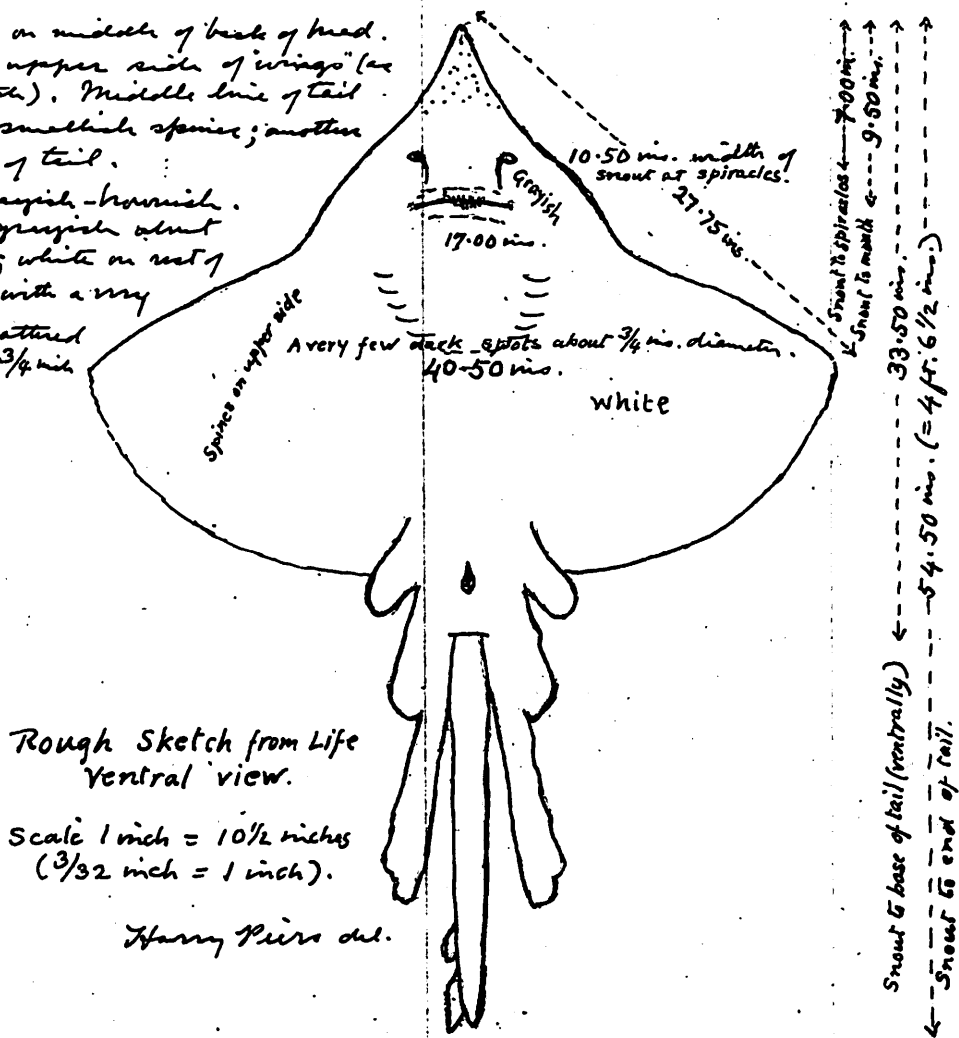 on middle of back of head.
upper side of "wings" (as
). Middle line of tail
smallish spines; another
of tail.
ayish-brownish.
grayish about
white on rest of
with a very
attered
3/4 inch
10.50 ins. width of
snout at spiracles.
27.75 ins.
Grayish
17.00 ins.
Spines on upper side
A very few dark spots about 3/4 ins. diameter.
40.50 ins.
White
Snout to spiracles 7.00 in.
Snout to mouth 9.50 ins.
33.50 ins.
Snout to base of tail (ventrally)
54.50 ins. (= 4 ft. 6 1/2 ins.)
Snout to end of tail.
Rough Sketch from Life
Ventral view.
Scale 1 inch = 10 1/2 inches
(3/32 inch = 1 inch).
Harry Piers del.